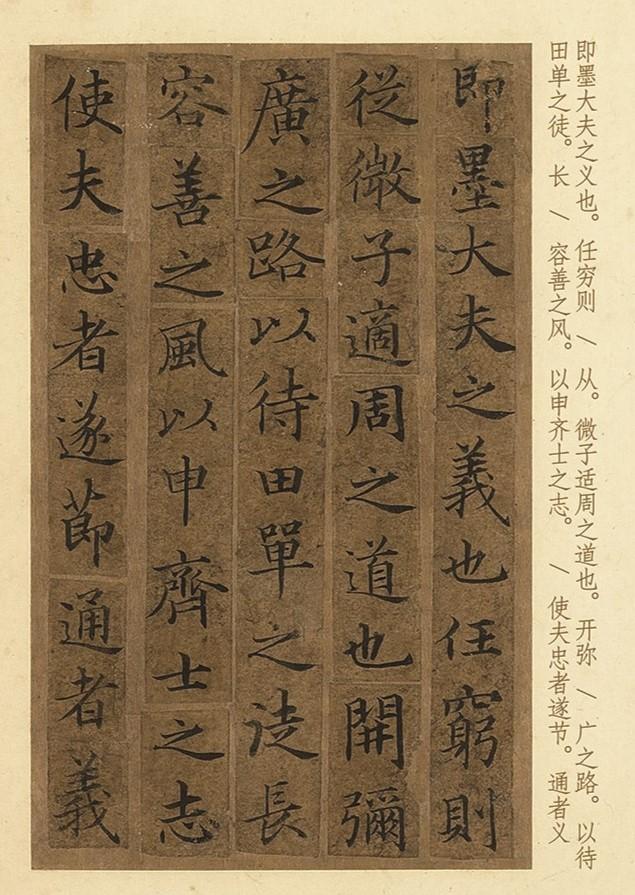 即墨大夫之义也。任穷则 \ 从。微子适周之道也。开弥 \ 广之路。以待
田单之徒。长 \ 容善之风。以申齐士之志。 \ 使夫忠者遂节。通者义
即墨大夫之義也任窮則
從微子適周之道也開彌
廣之路以待田單之徒長
容善之風以申齊士之志
使夫忠者遂節通者義